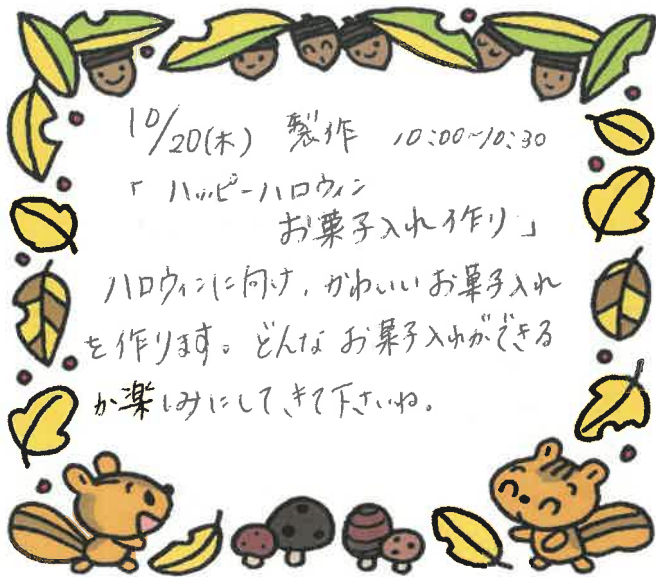 10/20(木) 製作 10:00~10:30
「ハッピーハロウィン
お菓子入れ作り」
ハロウィンに向け、かわいいお菓子入れ
を作ります。どんなお菓子入れができる
か楽しみにしてきて下さいね。